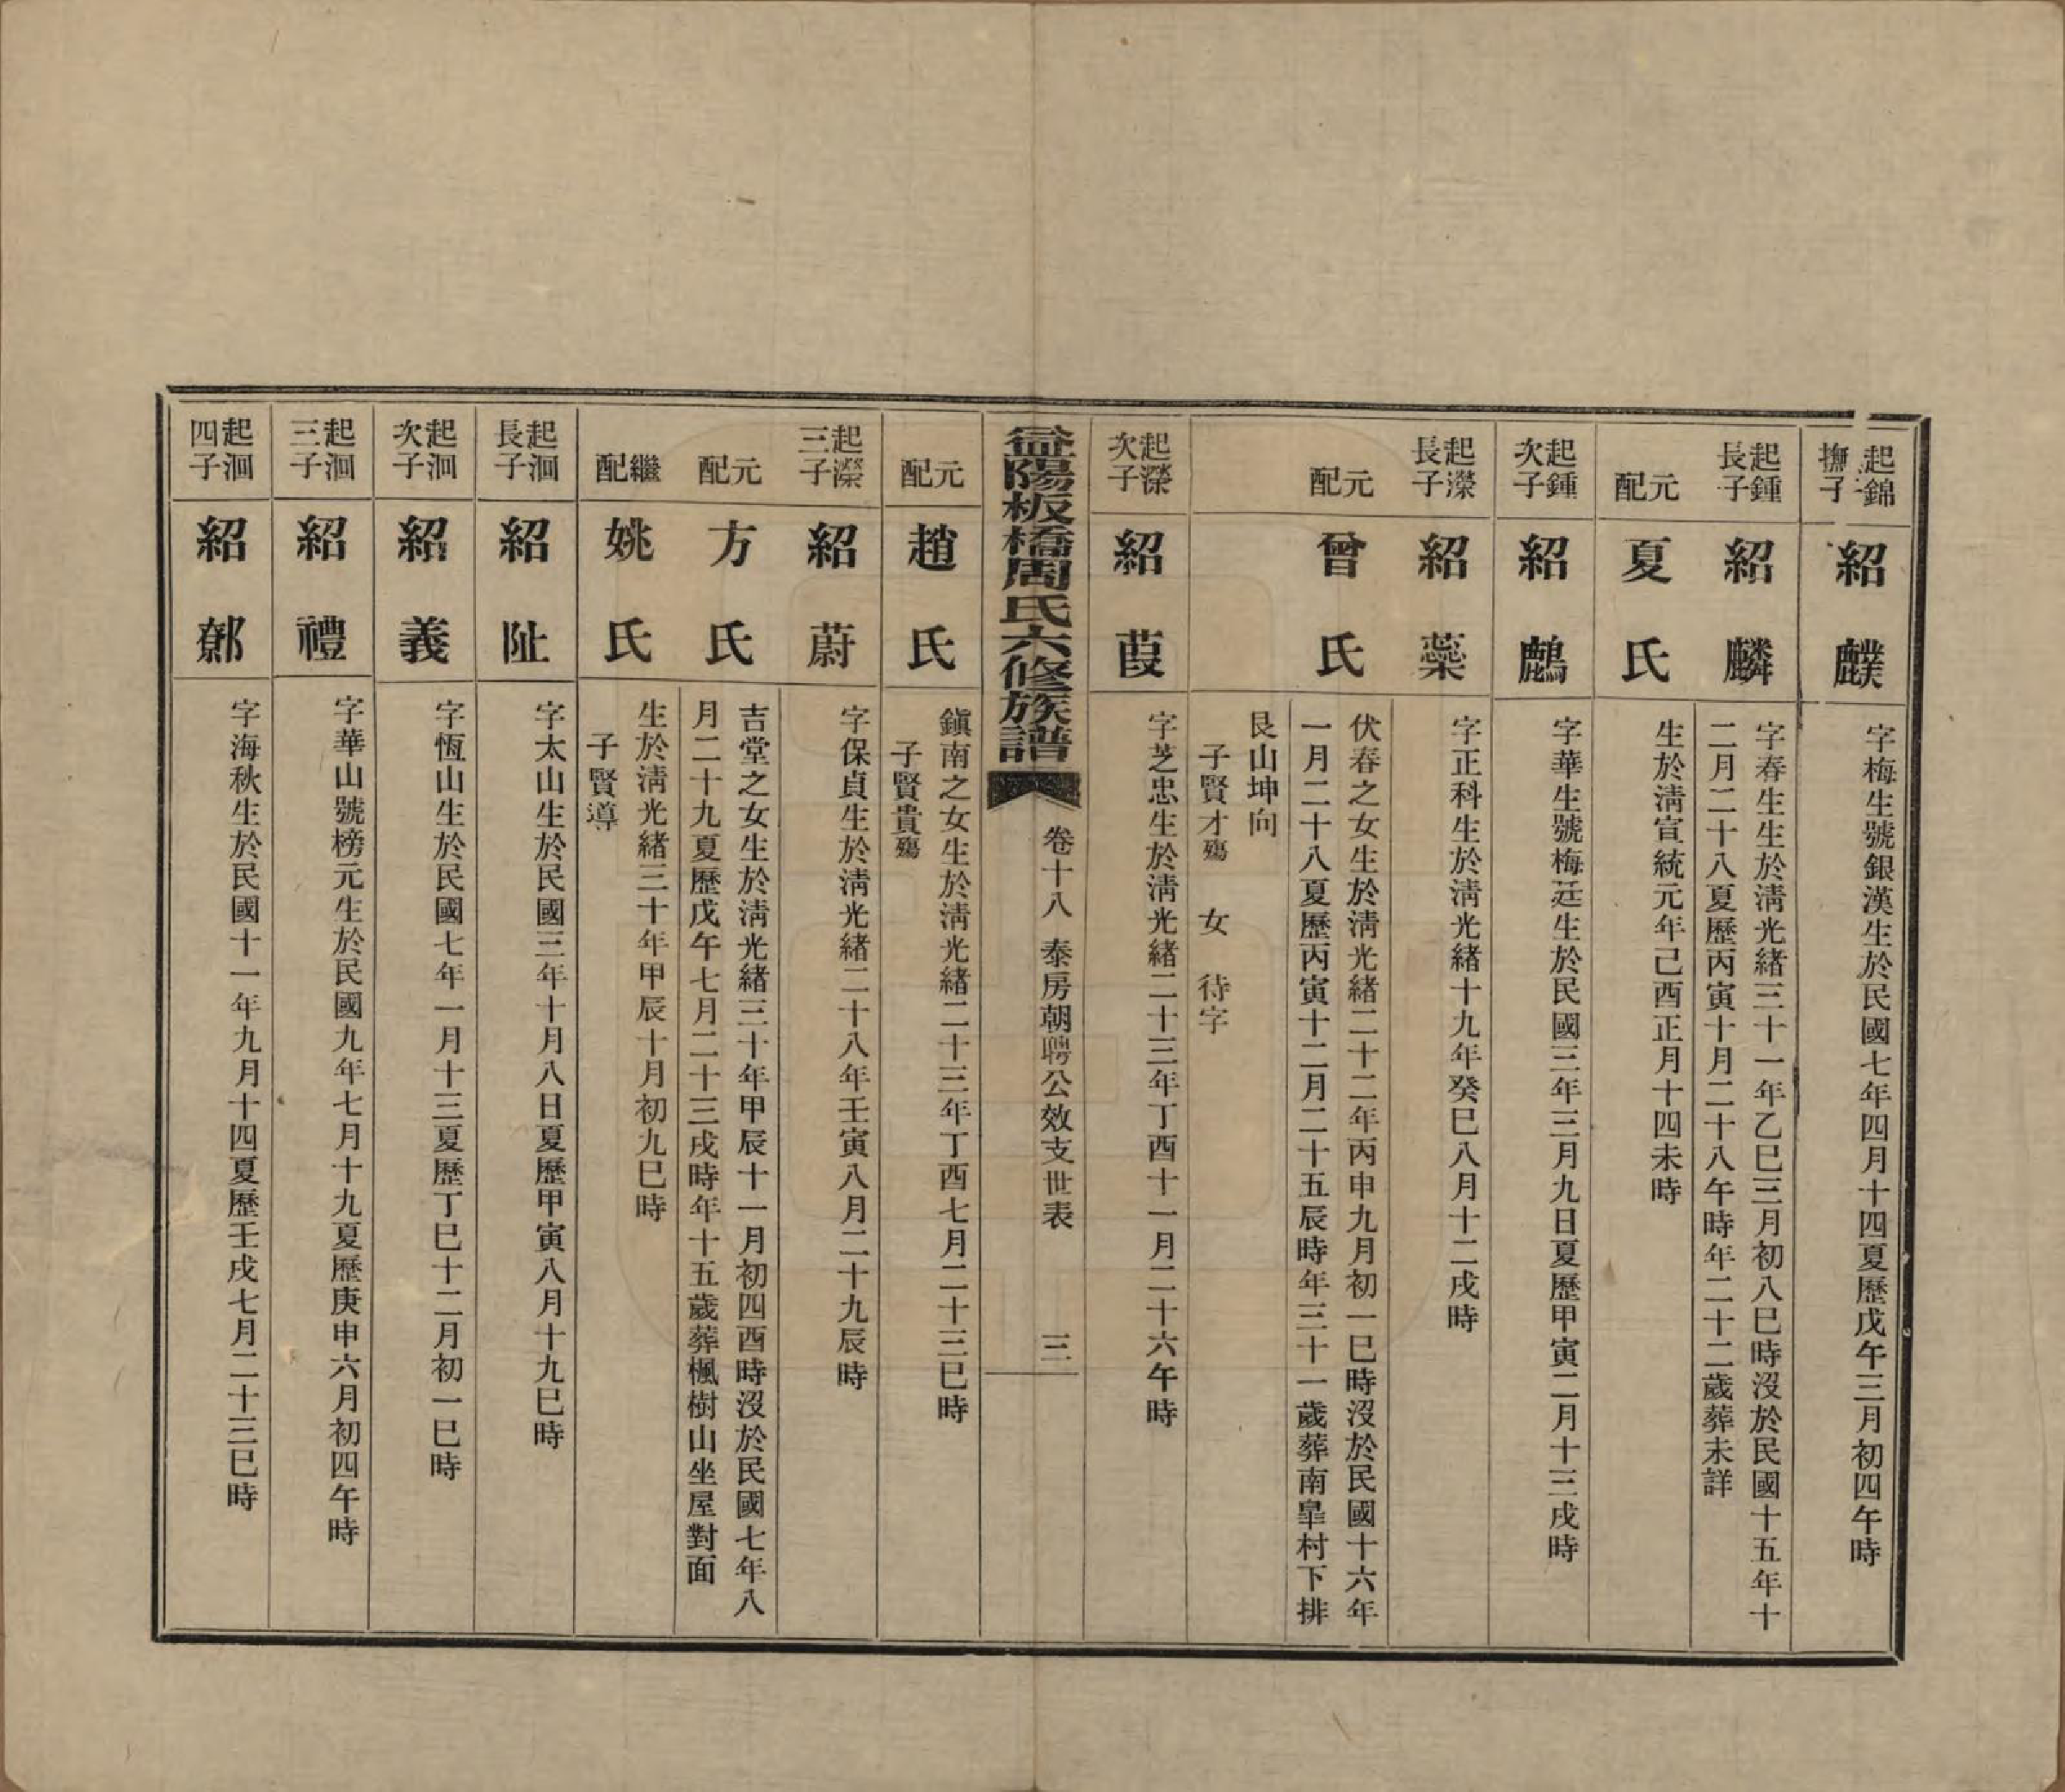 起錦
撫子
紹
字梅生號銀漢生於民國七年四月十四夏歷戊午三月初四午時
起鍾
長子
紹麟
字春生生於淸光緖三十一年乙巳三月初八巳時沒於民國十五年十
二月二十八夏歷丙寅十月二十八午時年二十二歲葬未詳
元配
夏氏
生於淸宣統元年己酉正月十四未時
起鍾
次子
紹鷓
字華生號梅廷生於民國三年三月九日夏歷甲寅二月十三戌時
起濚
長子
紹蘂
字正科生於淸光緖十九年癸巳八月十二戌時
元配
曾氏
伏春之女生於淸光緖二十二年丙申九月初一巳時沒於民國十六年
一月二十八夏歷丙寅十二月二十五辰時年三十一歲葬南臯村下排
艮山坤向
子賢才殤　女　待字
起濚
次子
紹葭
字芝忠生於淸光緖二十三年丁酉十一月二十六午時
益陽板橋周氏六修族譜
卷十八　泰房朝聘公效支世表
三
元配
趙氏
鎭南之女生於淸光緖二十三年丁酉七月二十三巳時
子賢貴殤
起濚
三子
紹蔚
字保貞生於淸光緖二十八年壬寅八月二十九辰時
元配
方氏
吉堂之女生於淸光緖三十年甲辰十一月初四酉時沒於民國七年八
月二十九夏歷戊午七月二十三戌時年十五歲葬楓樹山坐屋對面
繼配
姚氏
生於淸光緖三十年甲辰十月初九巳時
子賢導
起洄
長子
紹阯
字太山生於民國三年十月八日夏歷甲寅八月十九巳時
起洄
次子
紹義
字恆山生於民國七年一月十三夏歷丁巳十二月初一巳時
起洄
三子
紹禮
字華山號榜元生於民國九年七月十九夏歷庚申六月初四午時
起洄
四子
紹鄒
字海秋生於民國十一年九月十四夏歷壬戌七月二十三巳時